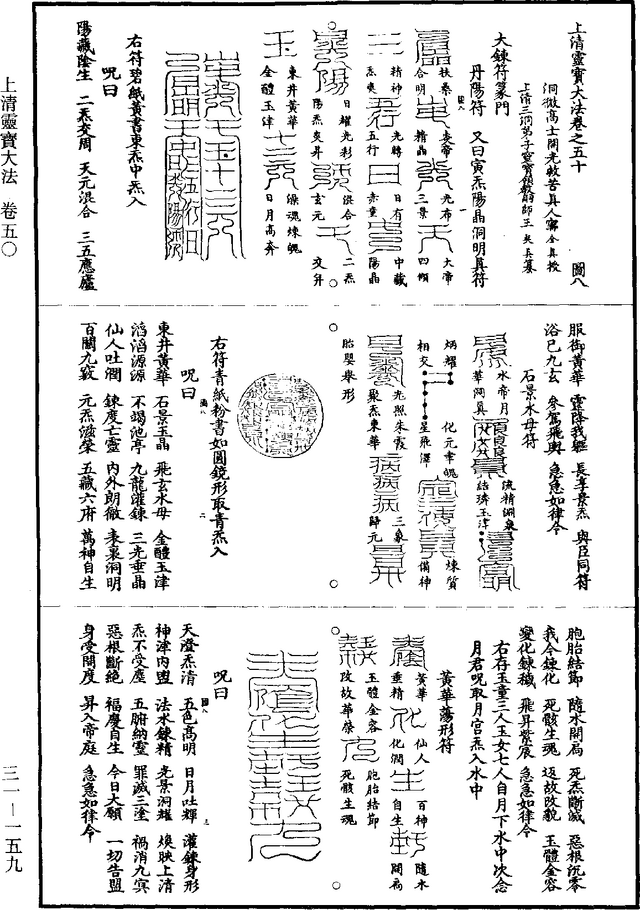 上清靈寶大法卷之五十　圖八
洞微高士開光救苦真人寧全真授
上清三洞弟子靈寶領教嗣師王契真纂
大鍊符篆門
丹陽符　又曰寅炁陽晶洞明真符
扶桑合明
炎帝精晶
光布三景
大帝四傾
精神炁爽
光轉五行
日有赤童
中藏陽晶
日耀光彩
陽炁爽昇
混合玄元
二炁交并
東井黃華
金醴玉津
滌魂煉魄
日月高奔
右符碧紙黃書東炁中炁入
呪曰
陽藏陰生　二炁交周　天元混合　三五應虛
服御黃華　靈降我軀　長享景炁　與臣同符
浴已九玄　參駕飛輿　急急如律令
石景水母符
水帝月華
洞真
流精淵泉
結璘玉津
炳耀相交
化元聿魄
星飛澤
煉質備神
光照朱霞
聚炁東華
三象歸元
胎嬰舉形
右符青紙粉書如圓鏡形取青炁入
呪曰
東井黃華　石景玉晶　飛玄水母　金醴玉津
滔滔源源　不竭池亭　九龍灌鍊　三光垂晶
仙人吐潤　鍊度亡靈　內外朗徹　表裏洞明
百關九竅　元炁滋榮　五藏六府　萬神自生
胞胎結節　隨水開局　死炁斷滅　惡根沉零
我今鍊化　死骸生魂　返故改貌　玉體金容
變化鍊穢　飛昇紫宸　急急如律令
右存玉童三人玉女七人自月下水中次念
月君呪取月宮炁入水中
黃華蕩形符
黃華垂精
仙人化潤
百神自生
隨水開局
玉體金容
改故華榮
胞胎結節
死骸生魂
呪曰
天澄炁清　五色高明　日月吐輝　灌鍊身形
神津內盟　法水鍊精　光景洞耀　煥映上清
炁不受塵　五腑納靈　罪滅三塗　禍消九冥
惡根斷絕　福慶自生　今日大願　一切告盟
身受開度　昇入帝庭　急急如律令
上清靈寶大法　卷五〇
三一—一五九